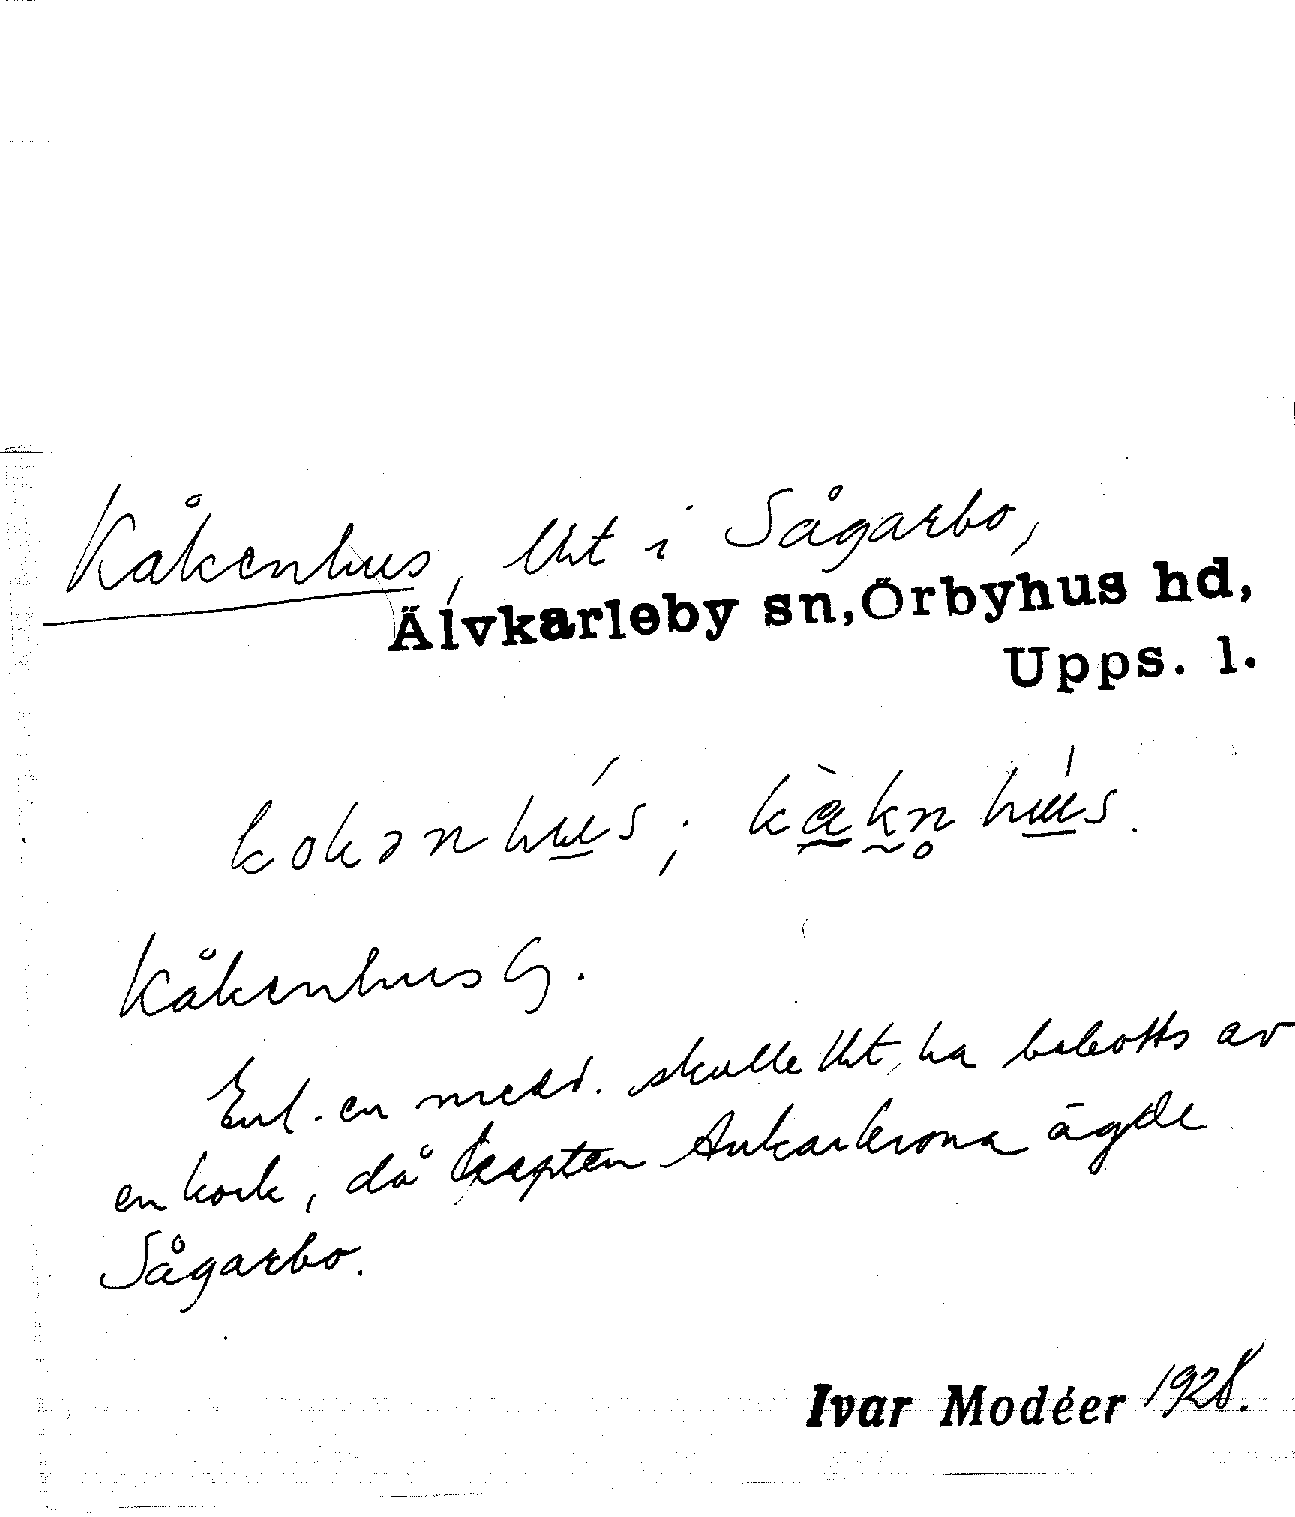 Kåkenhus, lht i Sågarbo,
Älvkarleby sn, Örbyhus hd,
Upps. l.
kokənhús; kàkn̥hús.
Kåkenhus G.
Enl. en medd. skulle lht ha bebotts av
en kock, då kapten Ankarkrona ägde
Sågarbo.
Ivar Modéer 1928.